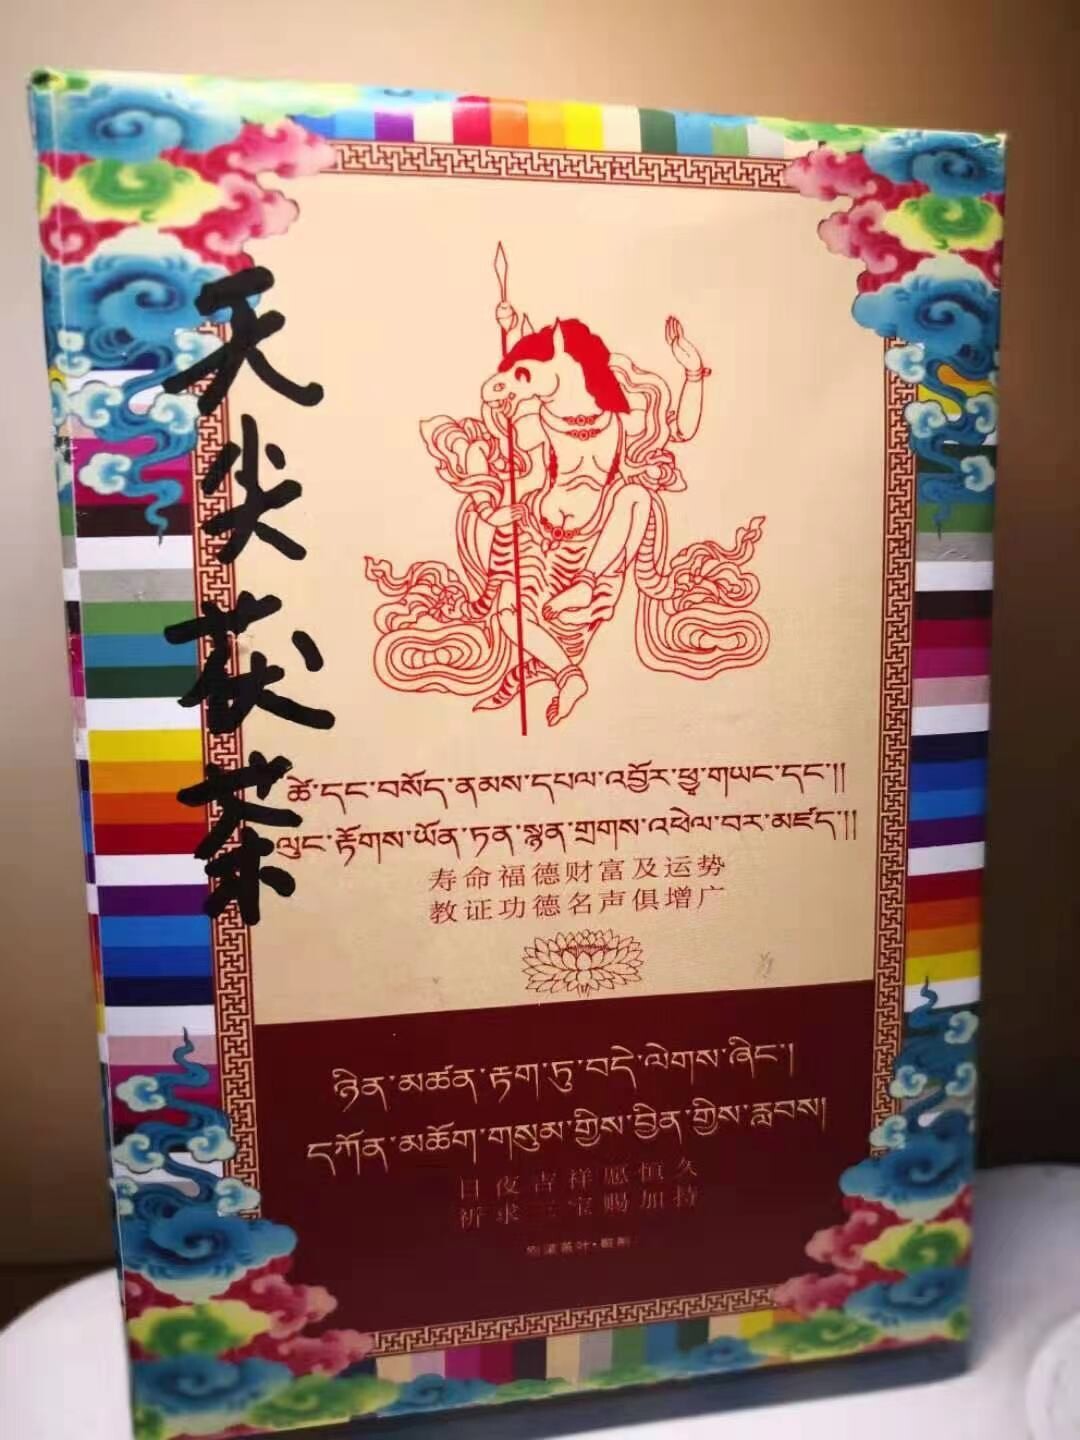 天尖茯茶
ཚེ་དང་བསོད་ནམས་དཔལ་འབྱོར་ཕྱྭ་གཡང་དང་།།
ལུང་རྟོགས་ཡོན་ཏན་སྙན་གྲགས་འཕེལ་བར་མཛད་།།
寿命福德财富及运势
教证功德名声俱增广
ཉིན་མཚན་རྟག་ཏུ་བདེ་ལེགས་ཞིང་།
དཀོན་མཆོག་གསུམ་གྱིས་བྱིན་གྱིས་རླབས།
日夜吉祥愿恒久
祈求三宝赐加持